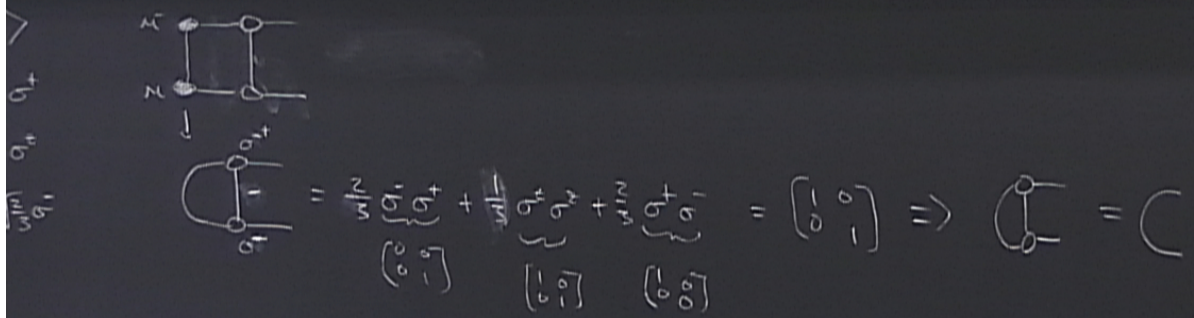 M̄
M
σ⁺
= 2/3 σ⁻ σ⁺ + 1/3 σᶻ σᶻ + 2/3 σ⁺ σ⁻ = (1 0 0 1) ⇒ =
(0 0 0 1) (1 0 0 1) (1 0 0 0)